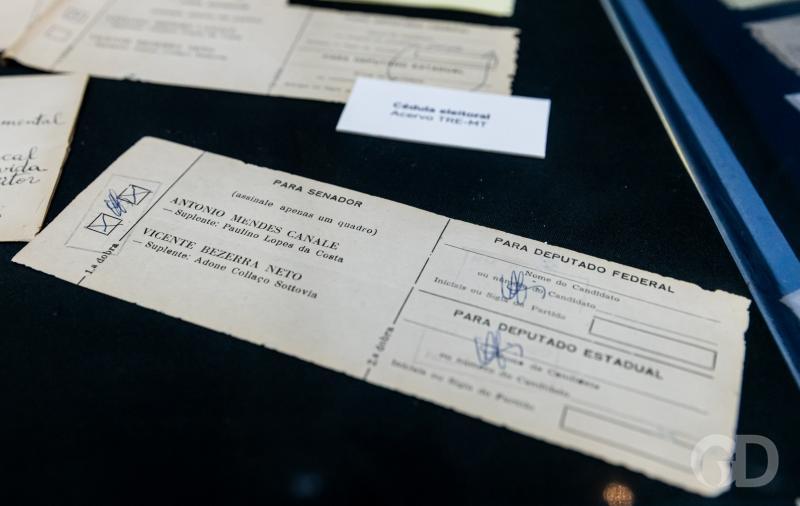 VICENTE BEZERRA NETO
PARA DEPUTADO ESTADUAL
Cédula eleitoral
Acervo TRE-MT
mental
cal
vida
tor
PARA SENADOR
(assinale apenas um quadro)
ANTONIO MENDES CANALE
— Suplente: Paulino Lopes da Costa
VICENTE BEZERRA NETO
— Suplente: Adone Collaço Sottovia
1.a dobra
2.a dobra
PARA DEPUTADO FEDERAL
Nome do Candidato
ou número do Candidato
Iniciais ou Sigla do Partido
PARA DEPUTADO ESTADUAL
Nome do Candidato
ou número do Candidato
Iniciais ou Sigla do Partido
GD